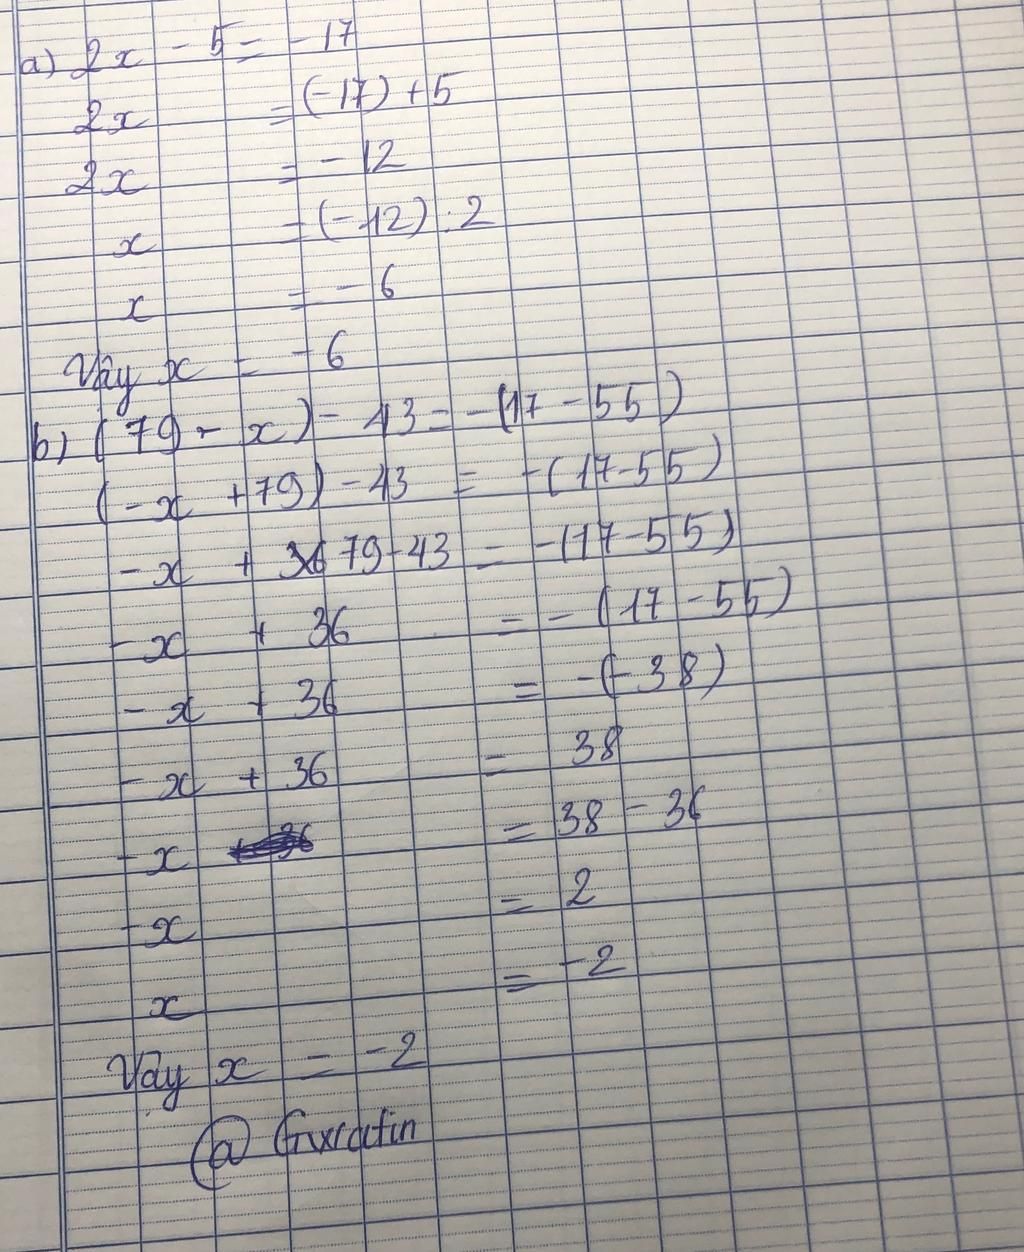 a) 2x - 5 = -17
2x = (-17) + 5
2x = -12
x = (-12) : 2
x = -6
Vậy x = -6
b) (79 - x) - 43 = -(17 - 55)
(-x + 79) - 43 = -(17-55)
-x + 79-43 = -(17-55)
-x + 36 = -(17-55)
-x + 36 = -(-38)
-x + 36 = 38
-x = 38 - 36
-x = 2
x = -2
Vậy x = -2